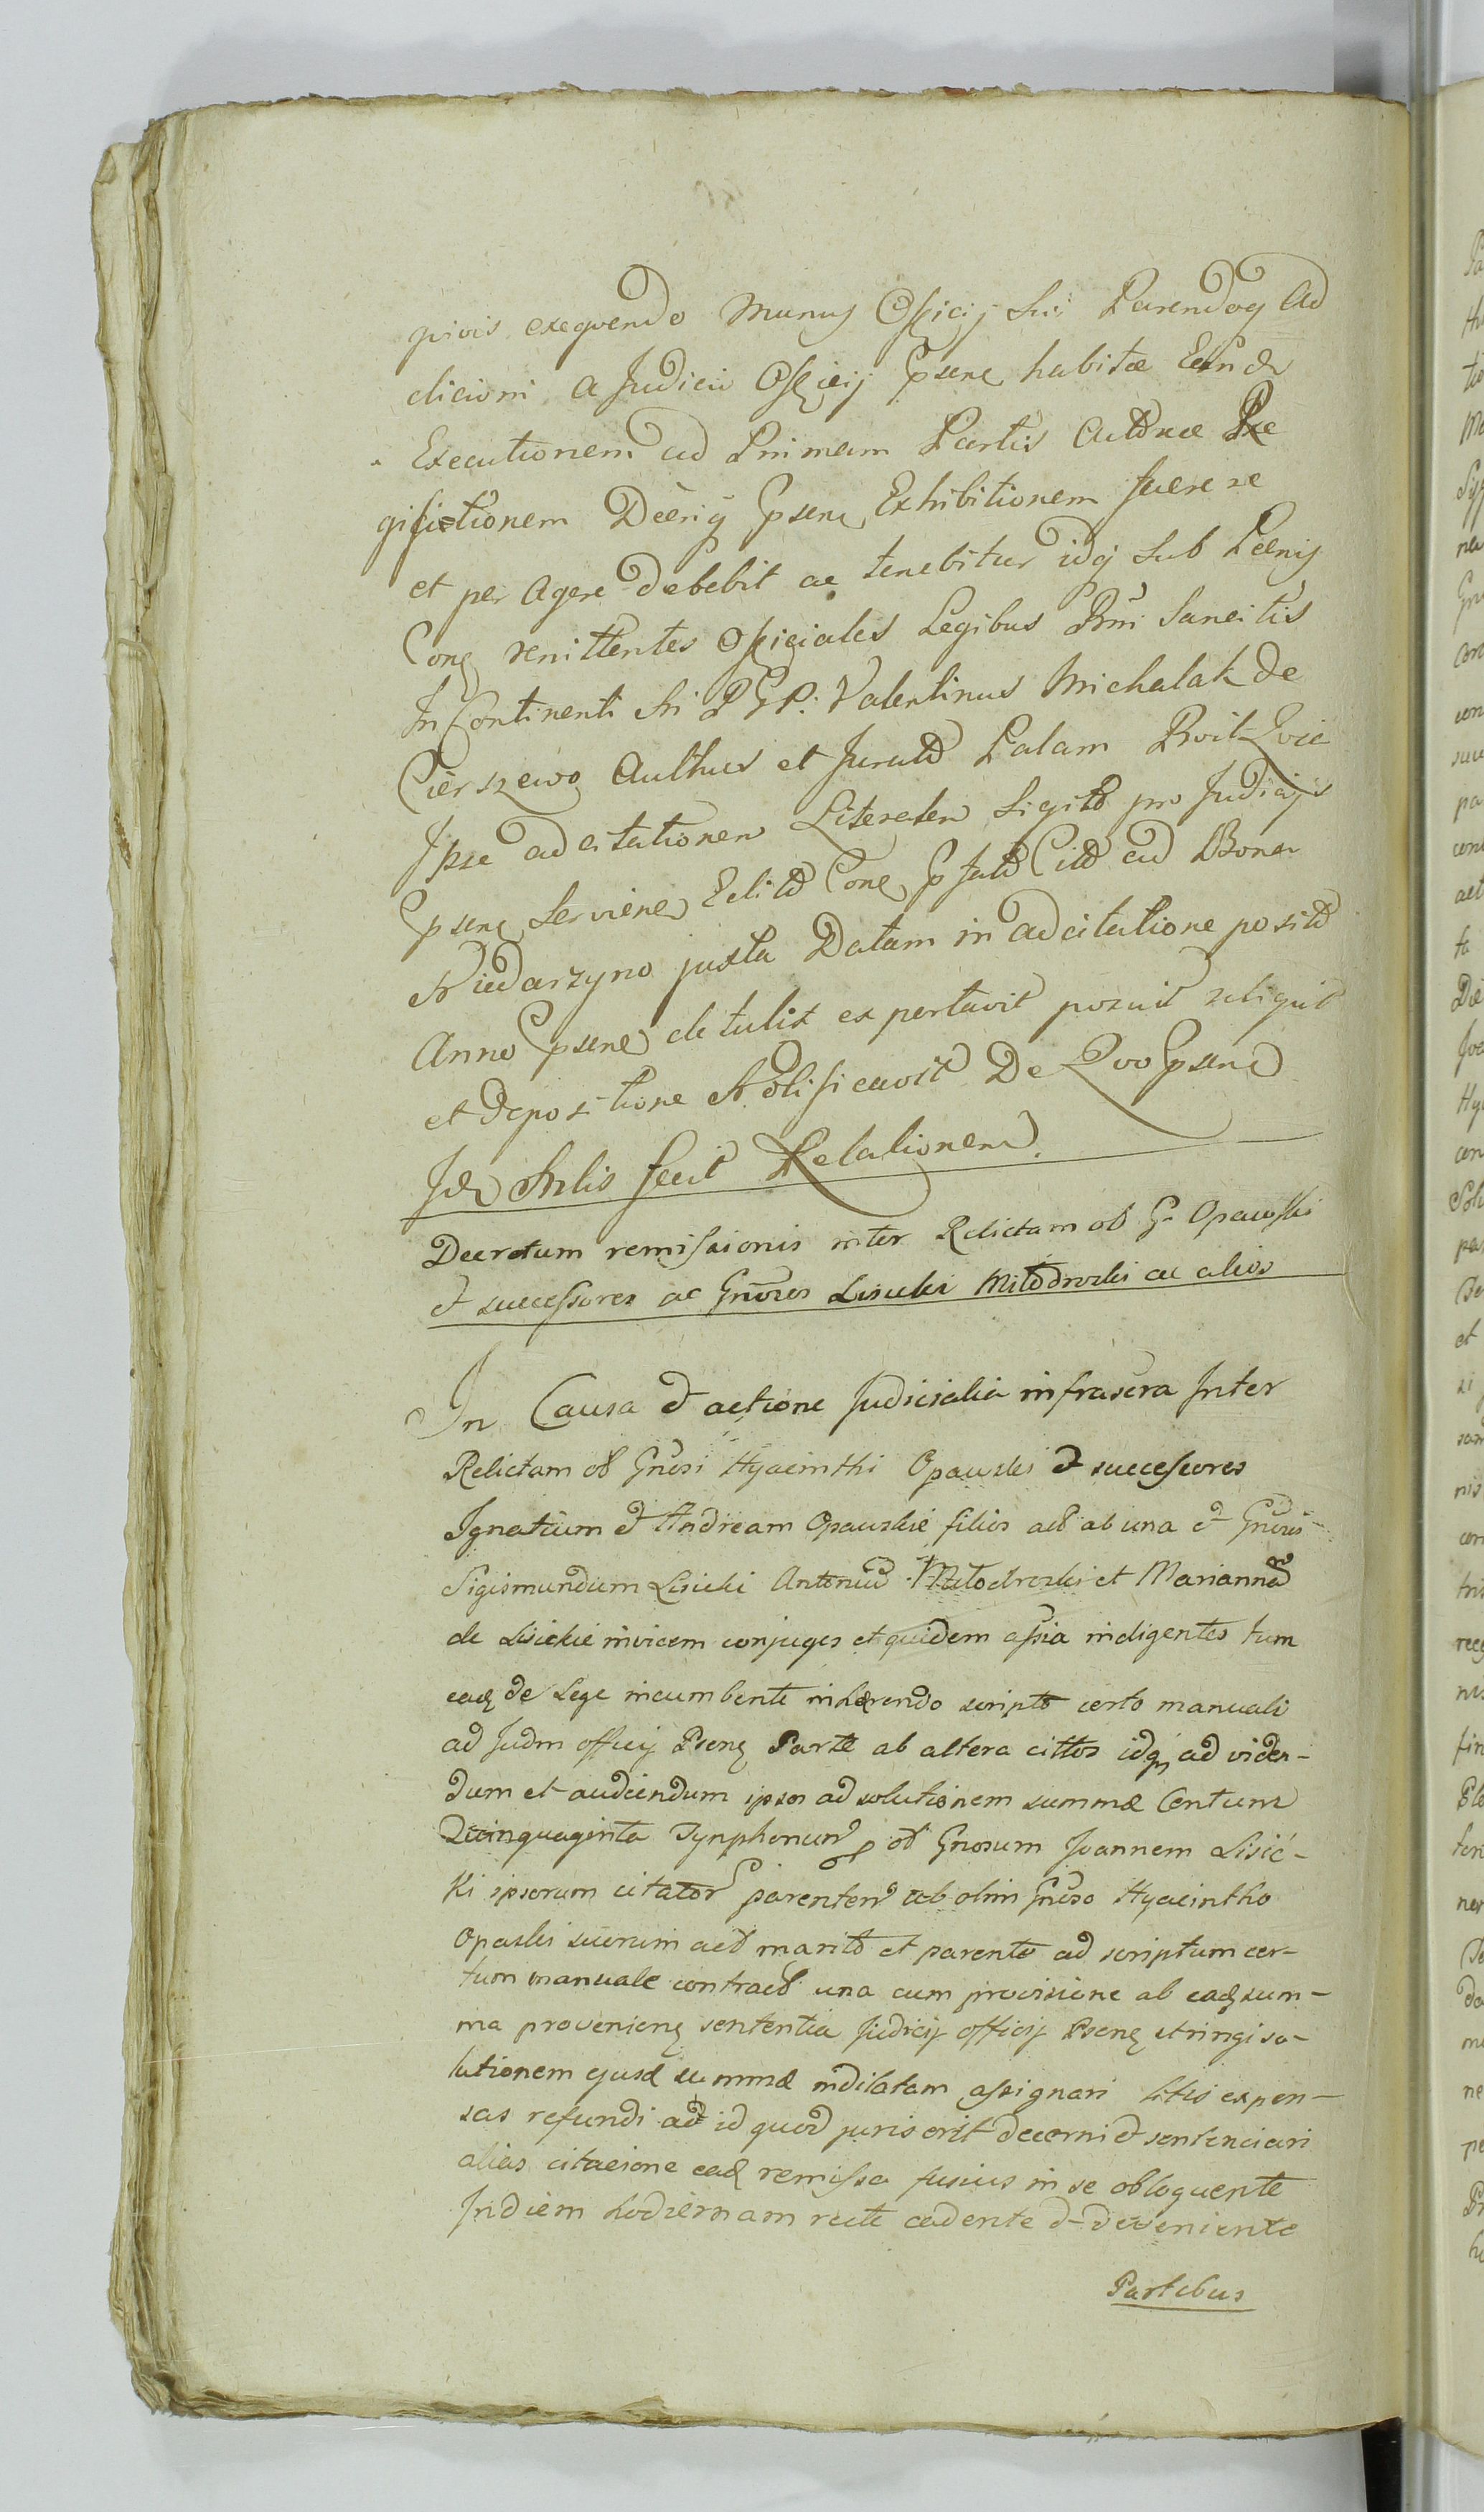 quivis exequendo Munus Officij Sui Parendoq Ad
dicioni a Judicii Officij Psenc habitæ Eand
Executionem ad Primam Partis Actoreæ Re
gisitionem Decrij Psenc Exhibitionem facere
et per Agere debebit ac tenebitur idq Sub Pænis
Conc renittentes Officiales Legibus Rni Sancitis
In Continenti Mi P G P: Valentinus Michalak de
Cierszewo Authus et Juratd Palam
Ipse adcitationem Literalem Sigitd pro Judicijs
Psenc Serviend Editd Conc Citd ad Bona
Niedarzyno juxta Datam in adcitatione positd
Anno Psene detulit expertavit posuit reliquit
et depositione Notificavit De Quo Psene
Id Mlis fecit Relationem.
Decretum remissionis inter Relictam ol G. Opawski
et successores ac Gnoros Lisicki Milodrozki ac alios
In Causa et actione Judicialia infrascra Inter
Relictam ol Gnosi Hyacinthi Opawski et successores
Ignatium et Andream Opawskie filios act ab una et Gnoros
Sigismundum Lisicki Antonium Milodrozki et Mariannam
de Lisickie invicem conjuges et quidem assia indigentes tum
eaq de Lege incumbente inhærendo scripto certo manuali
ad Judm officij Psenc Parte ab altera cittos idq ad viden-
dum et audiendum ipsos ad solutionem summæ Centum
Quinquaginta Tynphonum p ol Gnosum Joannem Lisic-
ki ipsorum citator parentem ab olim Gnoso Hyacintho
Opaski suorum act marito et parente ad scriptum cer-
tum manuale contract una cum provisione ab eaq sum-
ma provenienc sententia Judicij officij Psenc stringi so-
lutionem ejusd summæ indilatam assignari litis expen-
sas refundi ad id quod juris erit decerni et sentenciari
alias citacione eaq remissa fusius in se obloquente
In diem hodiernam recte cadente et deveniente
Partibus